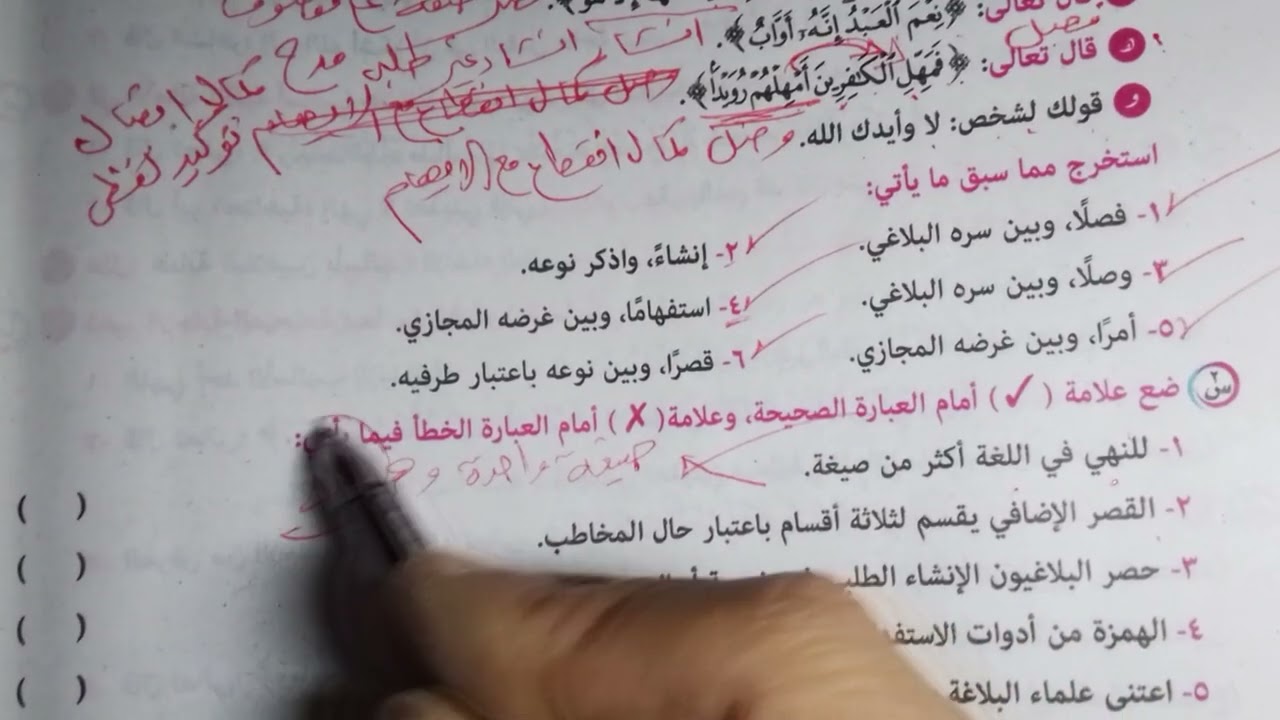 قال تعالى: ﴿نِعْمَ الْعَبْدُ إِنَّهُ أَوَّابٌ﴾.
إنشاء غير طلبي مدح
كمال اتصال
فصل
هـ قال تعالى: ﴿فَمَهِّلِ الْكَافِرِينَ أَمْهِلْهُمْ رُوَيْدًا﴾.
توكيد لفظي
و قولك لشخص: لا وأيدك الله.
وصل كمال انقطاع مع الإيهام
استخرج مما سبق ما يأتي:
١- فصلًا، وبين سره البلاغي.
٢- إنشاءً، واذكر نوعه.
٣- وصلًا، وبين سره البلاغي.
٤- استفهامًا، وبين غرضه المجازي.
٥- أمرًا، وبين غرضه المجازي.
٦- قصرًا، وبين نوعه باعتبار طرفيه.
س٢ ضع علامة (✓) أمام العبارة الصحيحة، وعلامة (✗) أمام العبارة الخطأ فيما
١- للنهي في اللغة أكثر من صيغة. ( )
صيغة واحدة
٢- القصر الإضافي يقسم لثلاثة أقسام باعتبار حال المخاطب. ( )
٣- حصر البلاغيون الإنشاء ( )
٤- الهمزة من أدوات ( )
٥- اعتنى علماء البلاغة